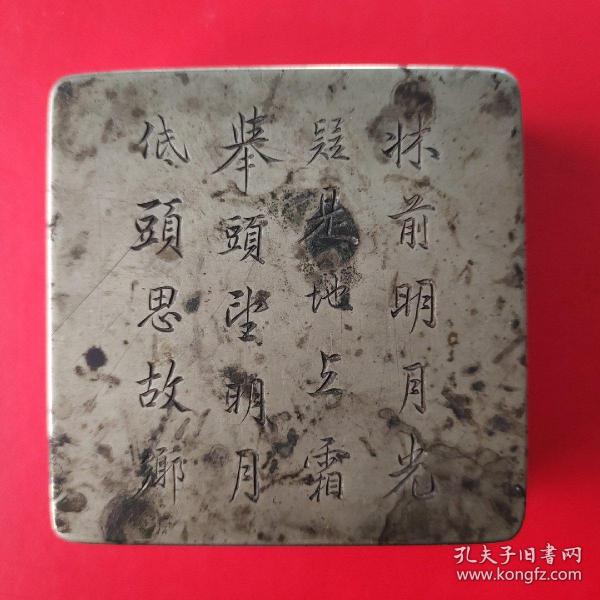 牀前明月光
疑是地上霜
舉頭望明月
低頭思故鄉
孔夫子旧书网
www.kongfz.com